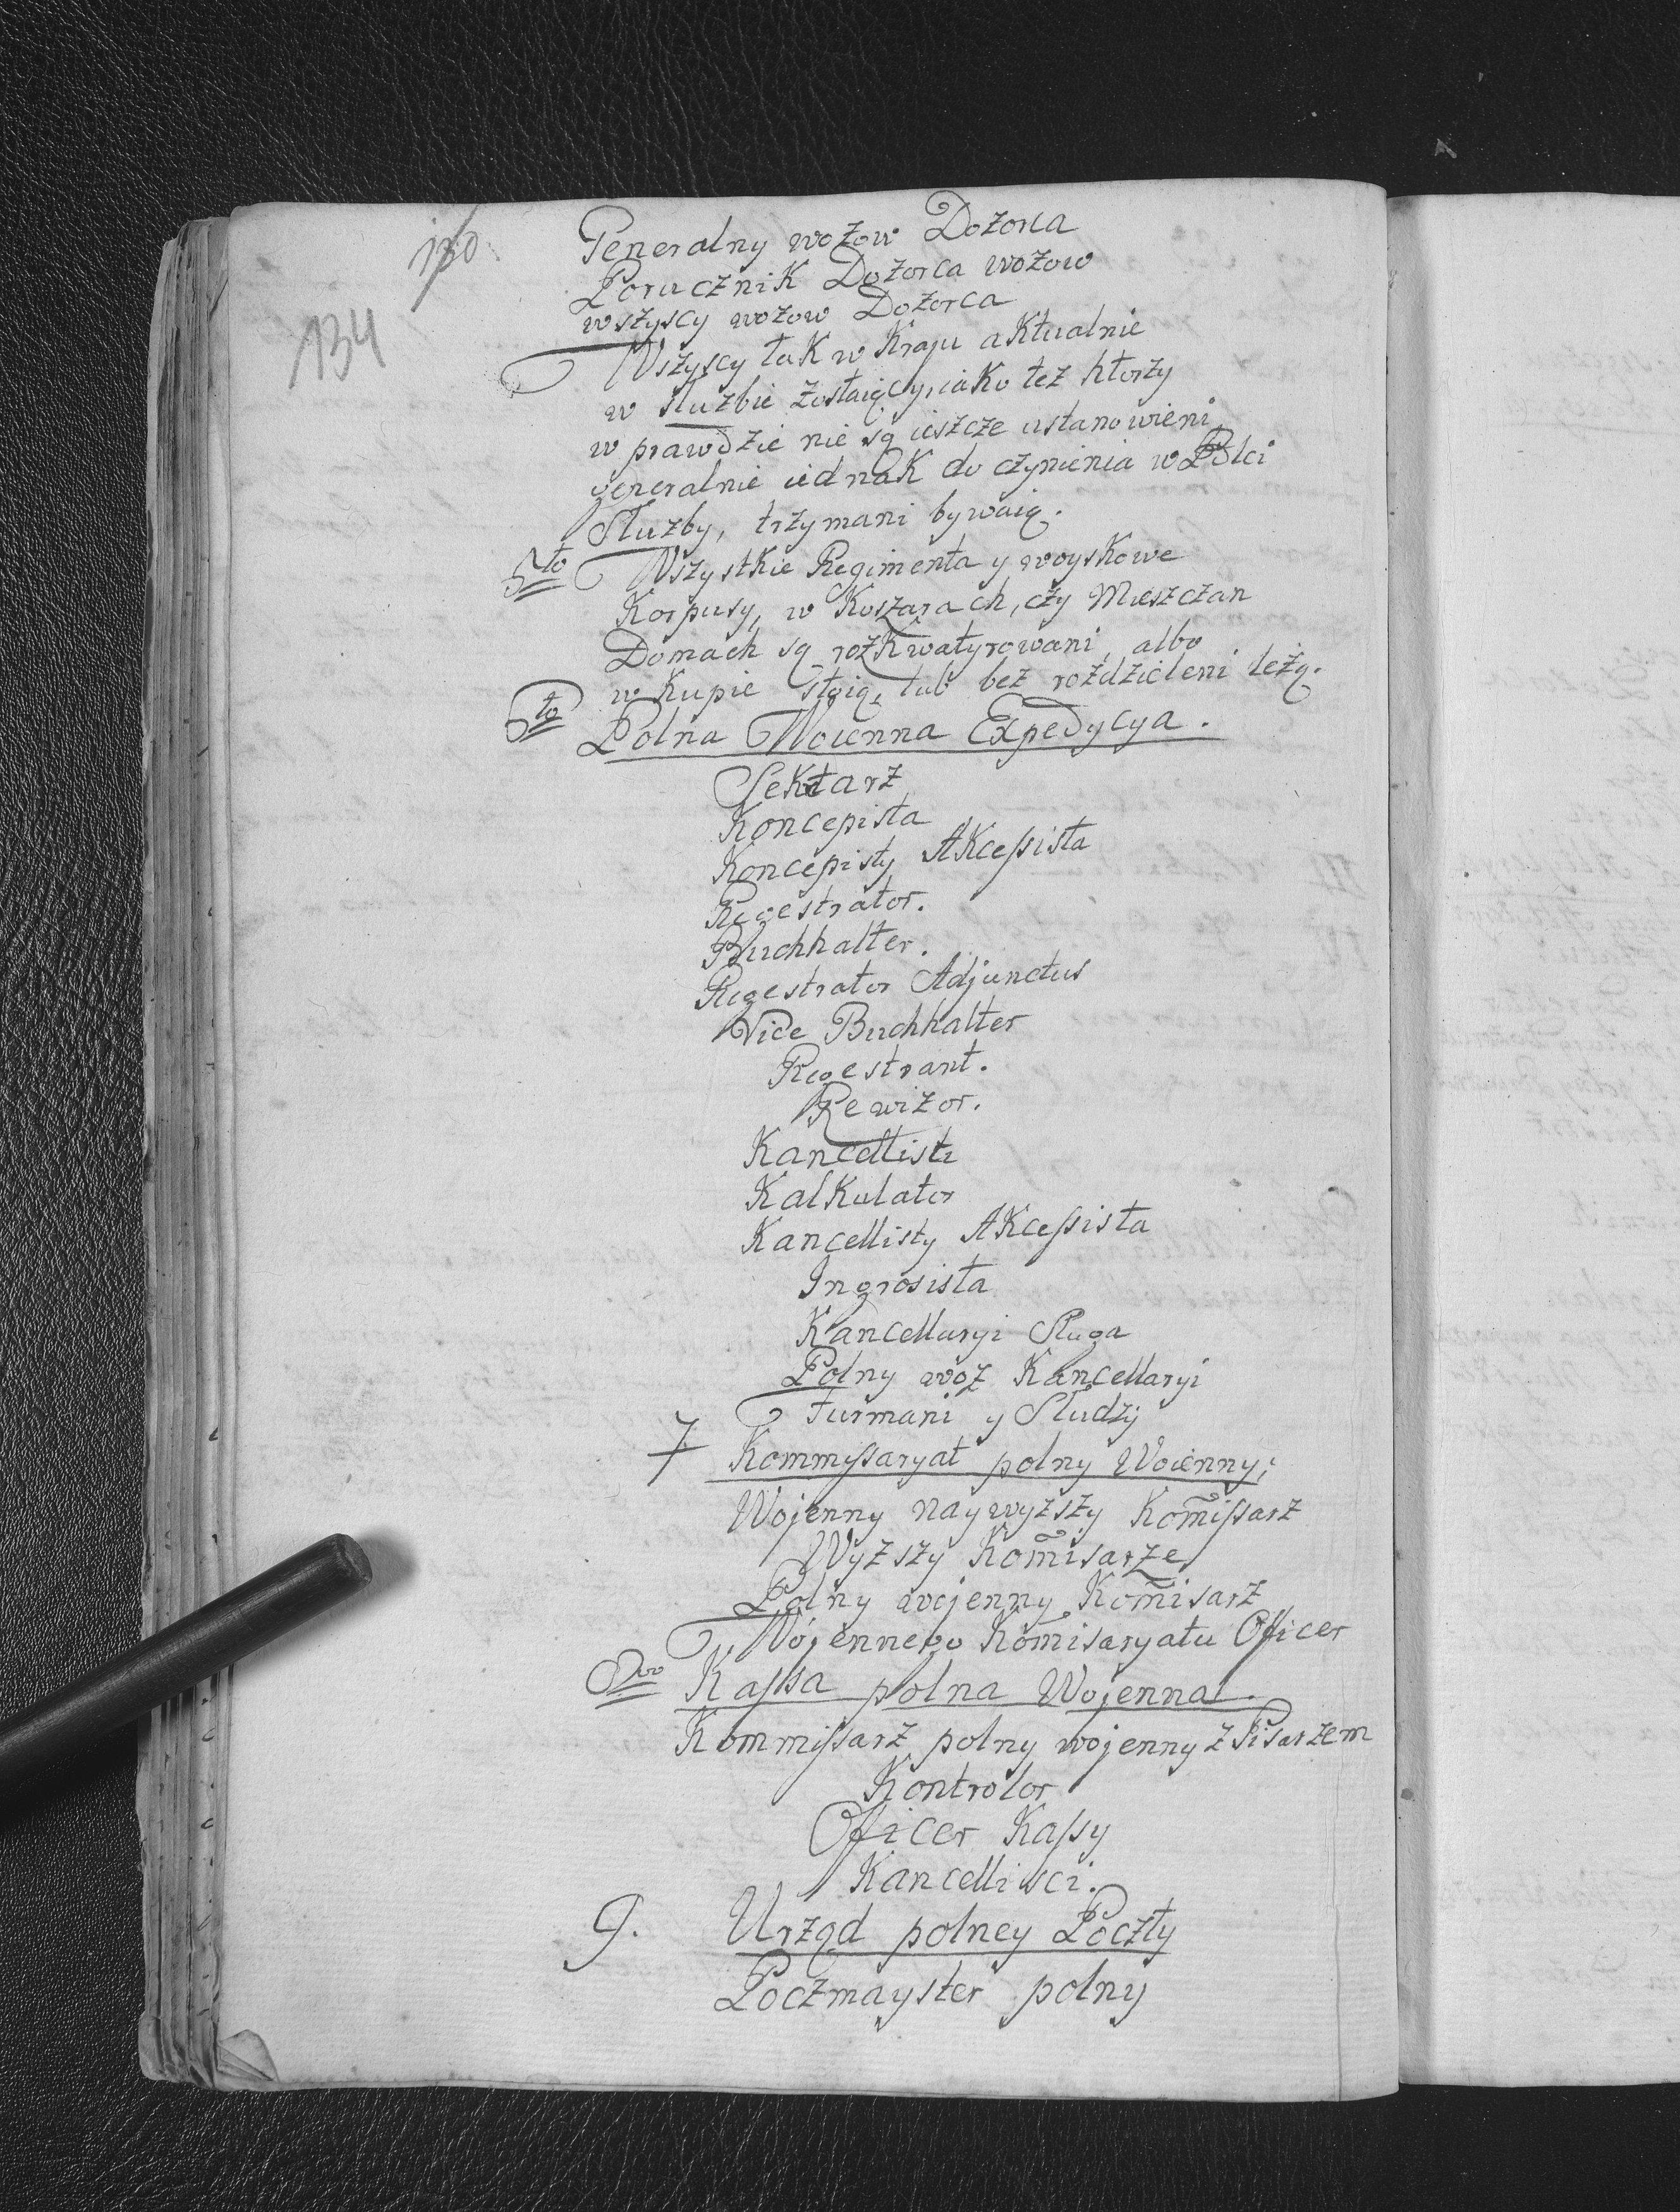 130.
134
Generalny wozow Dozorca
Porucznik Dozorca wozow
wszyscy wozow Dozorca
Wszyscy tak w Kraju aktualnie
w służbie zostaiący, iako też ktorzy
w prawdzie nie są ieszcze ustanowieni
generalnie iednak do czynienia w Polei
Służby, trzymani bywaią.
5to Wszystkie Regimenta y woyskowe
Korpusy, w Koszarach, czy Mieszczan
Domach są rozkwatyrowani, albo
w Kupie stoią, lub bez rozdzieleni leżą.
6to Polna Woienna Expedycya.
Sektarz
Koncepista
Koncepisty Akceſsista
Regestrator.
Buchhalter.
Regestrator Adjunctus
Vice Buchhalter
Regestrant.
Rewizor.
Kancellista
Kalkulator
Kancellisty Akceſsista
Ingrosista
Kancellaryi Sługa
Polny woz Kancellaryi
Furmani y Słudzy
7 Kommyſsaryat polny Woienny;
Wojenny naywyższy Kom̃iſsarz
Wyższy Kom̃isarze
Polny wojenny Kom̃isarz
Wojennego Kom̃isaryatu Officer
8vo Kaſsa polna Wojenna.
Kommiſsarz polny wojenny z Pisarzem
Kontrolor
Officer Kaſsy
Kancellisci.
9. Urząd polney Poczty
Poczmayster polny